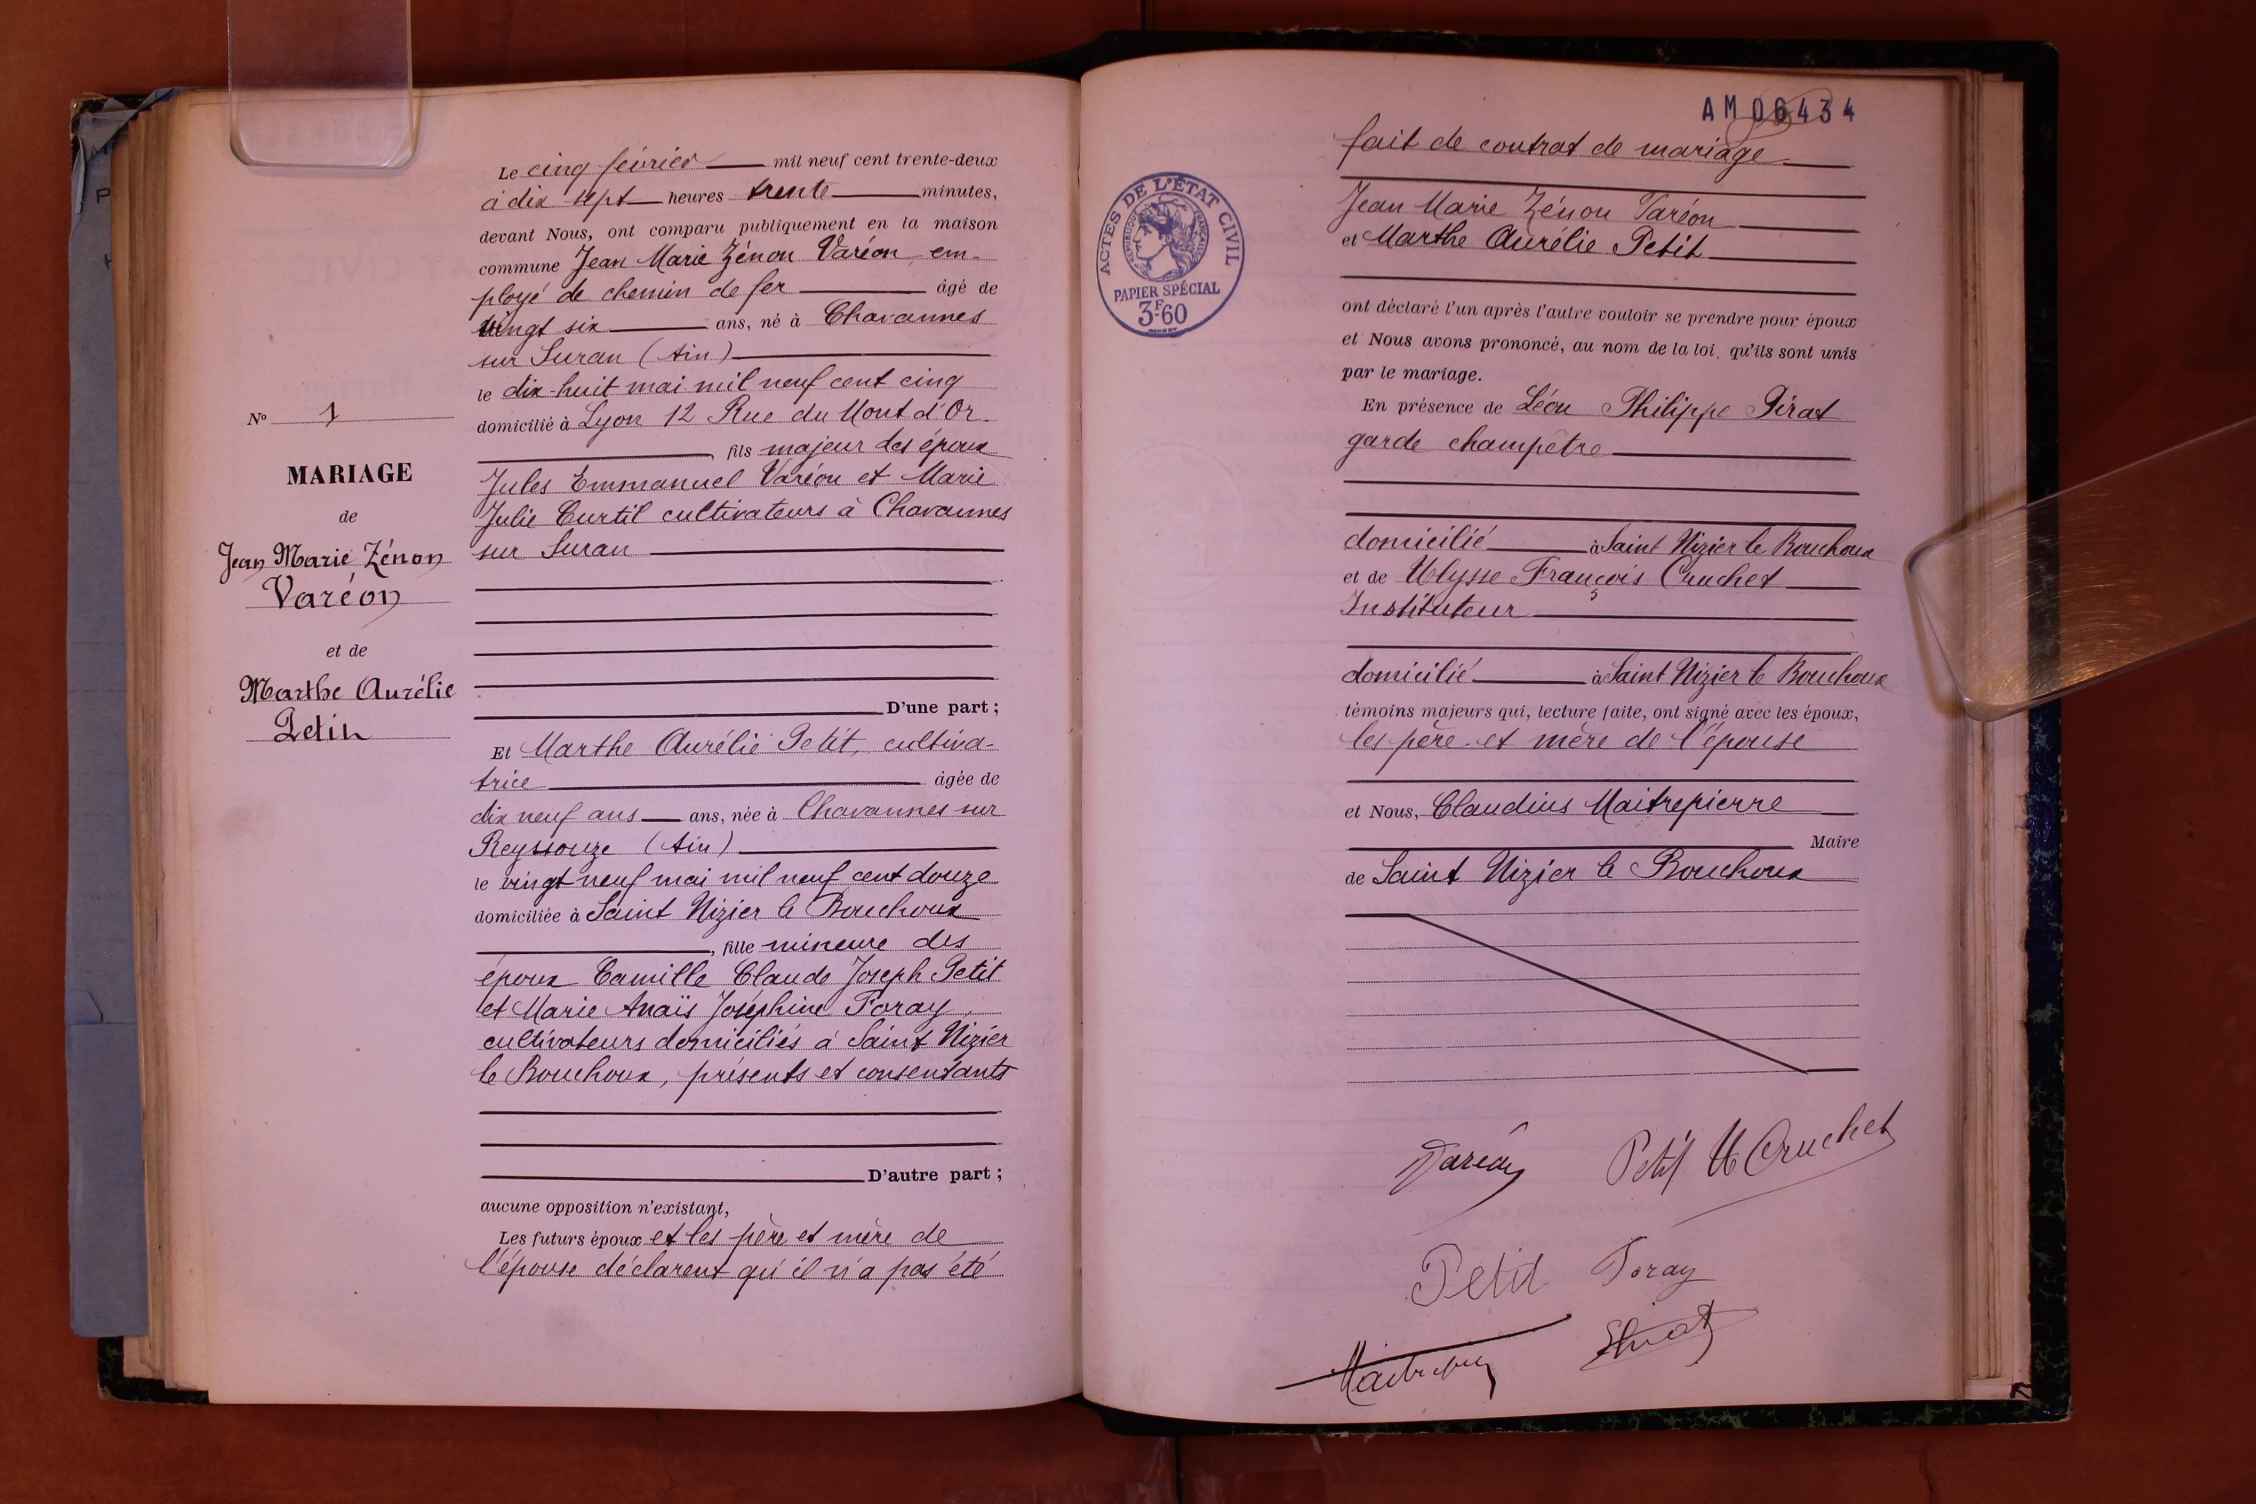 N° 1
MARIAGE
de
Jean Marie Zénon
Varéon
et de
Marthe Aurélie
Petit
Le cinq février mil neuf cent trente-deux
à dix sept heures trente minutes,
devant Nous, ont comparu publiquement en la maison
commune Jean Marie Zénon Varéon, em-
ployé de chemin de fer âgé de
vingt six ans, né à Chavannes
sur Suran (Ain)
le dix-huit mai mil neuf cent cinq
domicilié à Lyon 12 Rue du Mont d'Or
, fils majeur des époux
Jules Emmanuel Varéon et Marie
Julie Curtil cultivateurs à Chavannes
sur Suran
D'une part ;
Et Marthe Aurélie Petit, cultiva-
trice âgée de
dix neuf ans ans, née à Chavannes sur
Reyssouze (Ain)
le vingt neuf mai mil neuf cent douze
domiciliée à Saint Nizier le Bouchoux
, fille mineure des
époux Camille Claude Joseph Petit
et Marie Anaïs Joséphine Foray,
cultivateurs domiciliés à Saint Nizier
le Bouchoux, présents et consentants
D'autre part ;
aucune opposition n'existant,
Les futurs époux et les père et mère de
l'épouse déclarent qu'il n'a pas été
AM 06434
fait de contrat de mariage
ACTES DE L'ÉTAT CIVIL
RÉPUBLIQUE FRANÇAISE
PAPIER SPÉCIAL
3F60
Jean Marie Zénon Varéon
et Marthe Aurélie Petit
ont déclaré l'un après l'autre vouloir se prendre pour époux
et Nous avons prononcé, au nom de la loi, qu'ils sont unis
par le mariage.
En présence de Léon Philippe Pirat
garde champêtre
domicilié à Saint Nizier le Bouchoux
et de Ulysse François Cruchet
Instituteur
domicilié à Saint Nizier le Bouchoux
témoins majeurs qui, lecture faite, ont signé avec les époux,
les père et mère de l'épouse
et Nous, Claudius Maitrepierre
Maire
de Saint Nizier le Bouchoux
Varéon Petit U Cruchet
Petit Foray